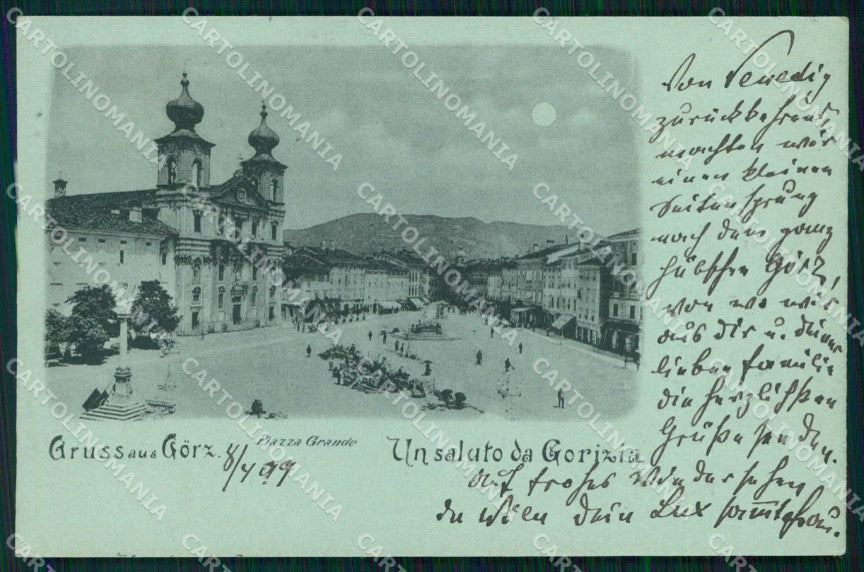 Von Venedig
zurückkehrend,
machten wir
einen kleinen
Seitensprung
nach dem ganz
hübschen Görz,
von wo wir
aus dir u. deiner
lieben Familie
die herzlichsten
Grüße senden.
Auf frohes Wiedersehen
in Wien dein Lux sammt Frau.
Gruss aus Görz. 8/4 99
Piazza Grande
Un saluto da Gorizia
CARTOLINOMANIA